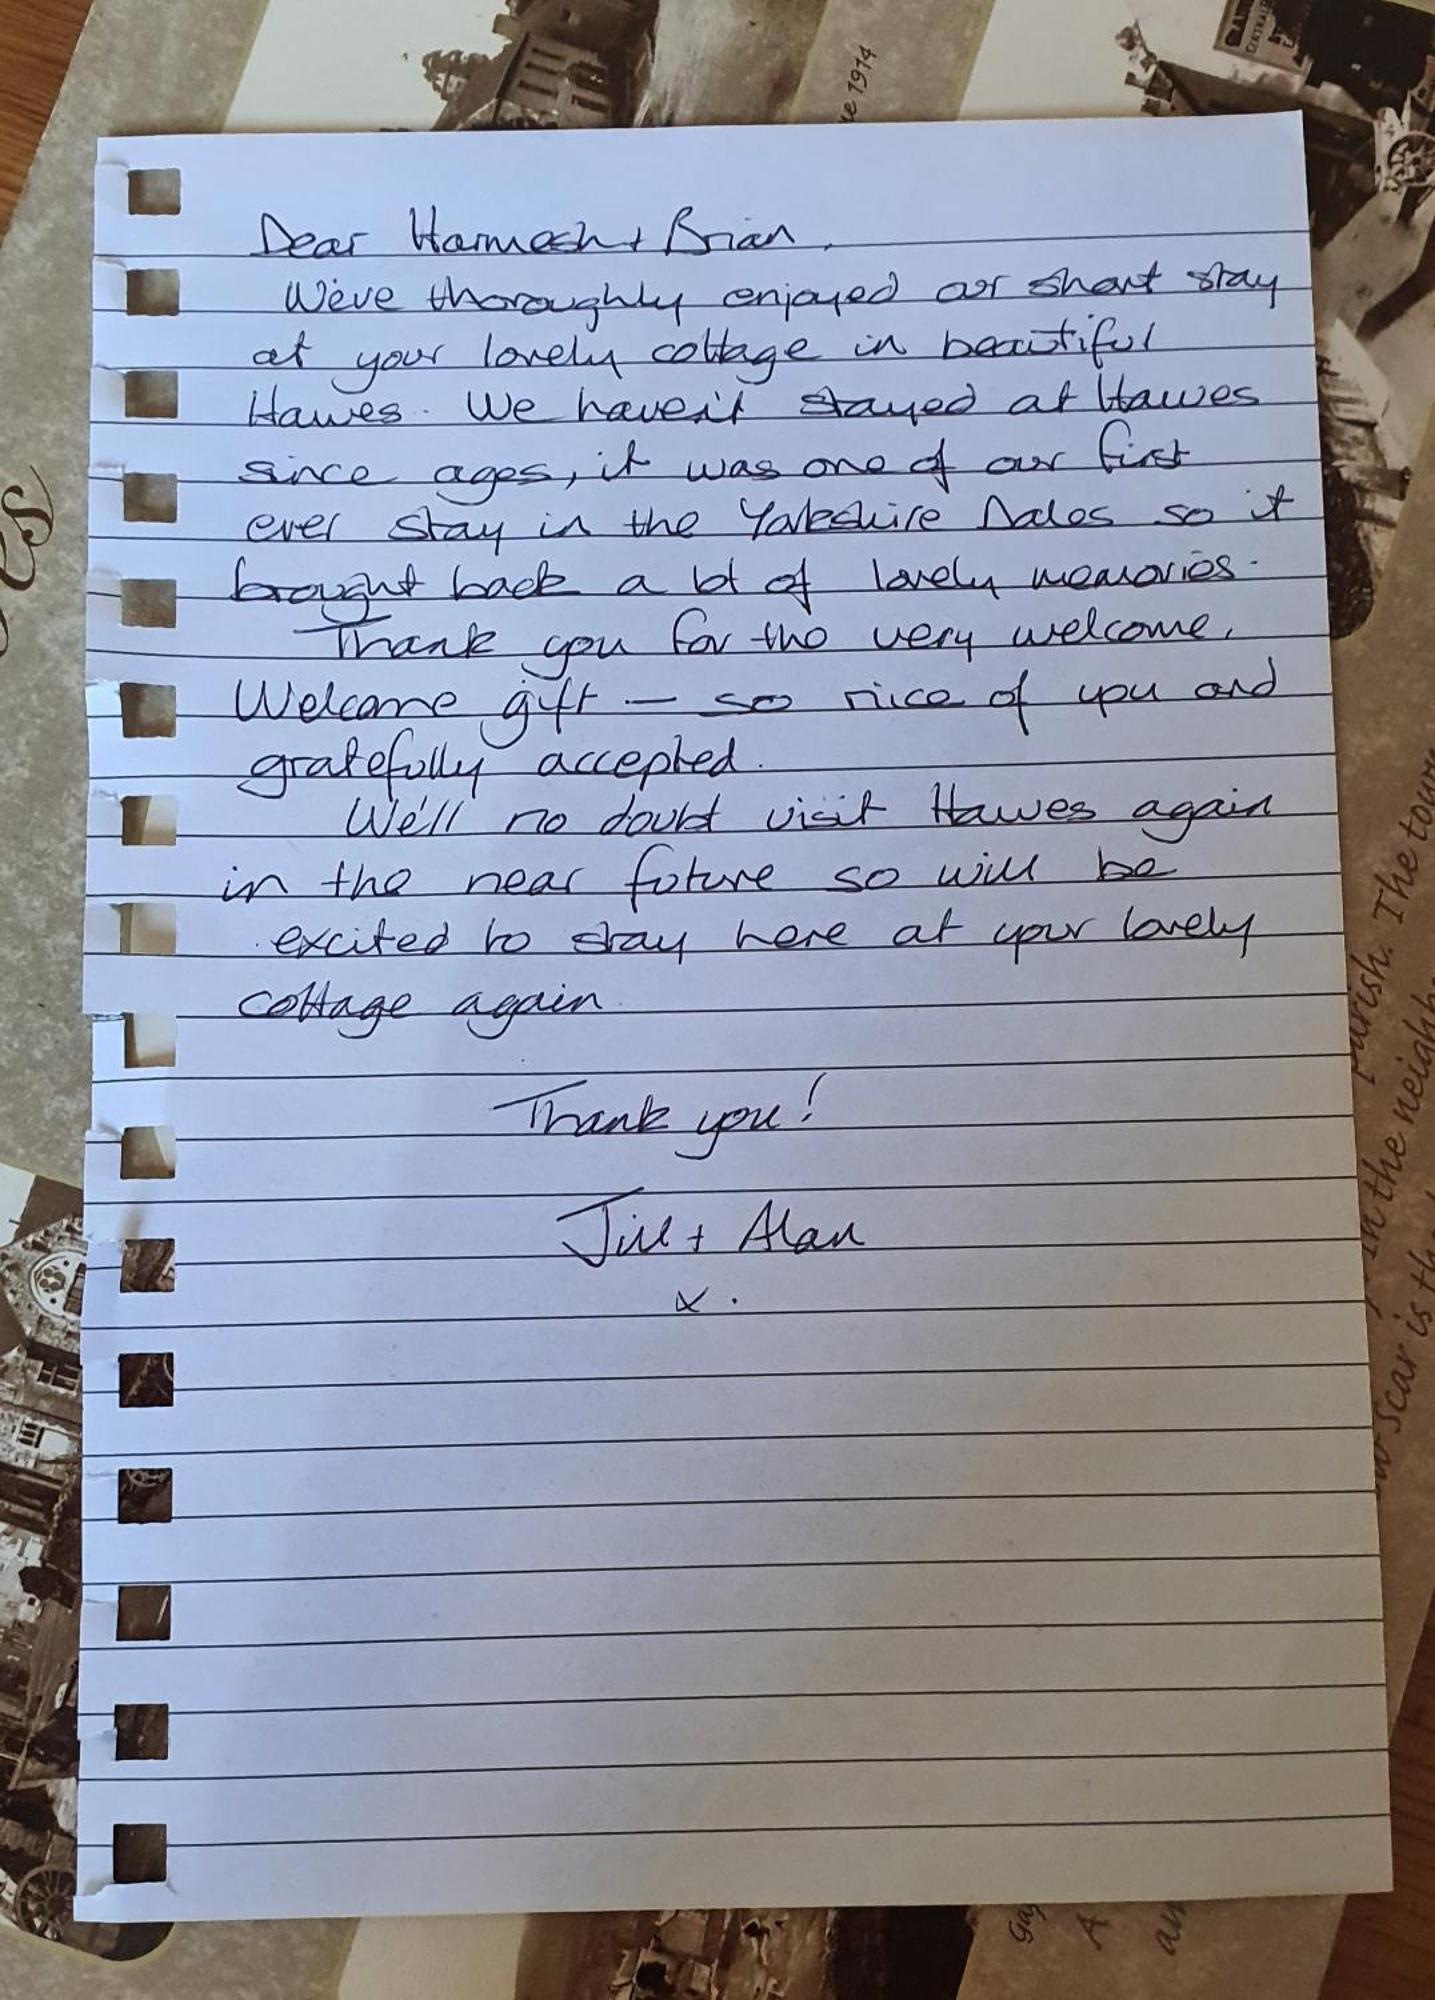 Dear Harmesh + Brian,
We've thoroughly enjoyed our short stay
at your lovely cottage in beautiful
Hawes. We haven't stayed at Hawes
since ages, it was one of our first
ever stay in the Yorkshire Dales so it
brought back a lot of lovely memories.
Thank you for the very welcome,
Welcome gift — so nice of you and
gratefully accepted.
We'll no doubt visit Hawes again
in the near future so will be
excited to stay here at your lovely
cottage again
Thank you!
Jill + Alan
x.
1914
parish. The town
in the neighb
Scar is th